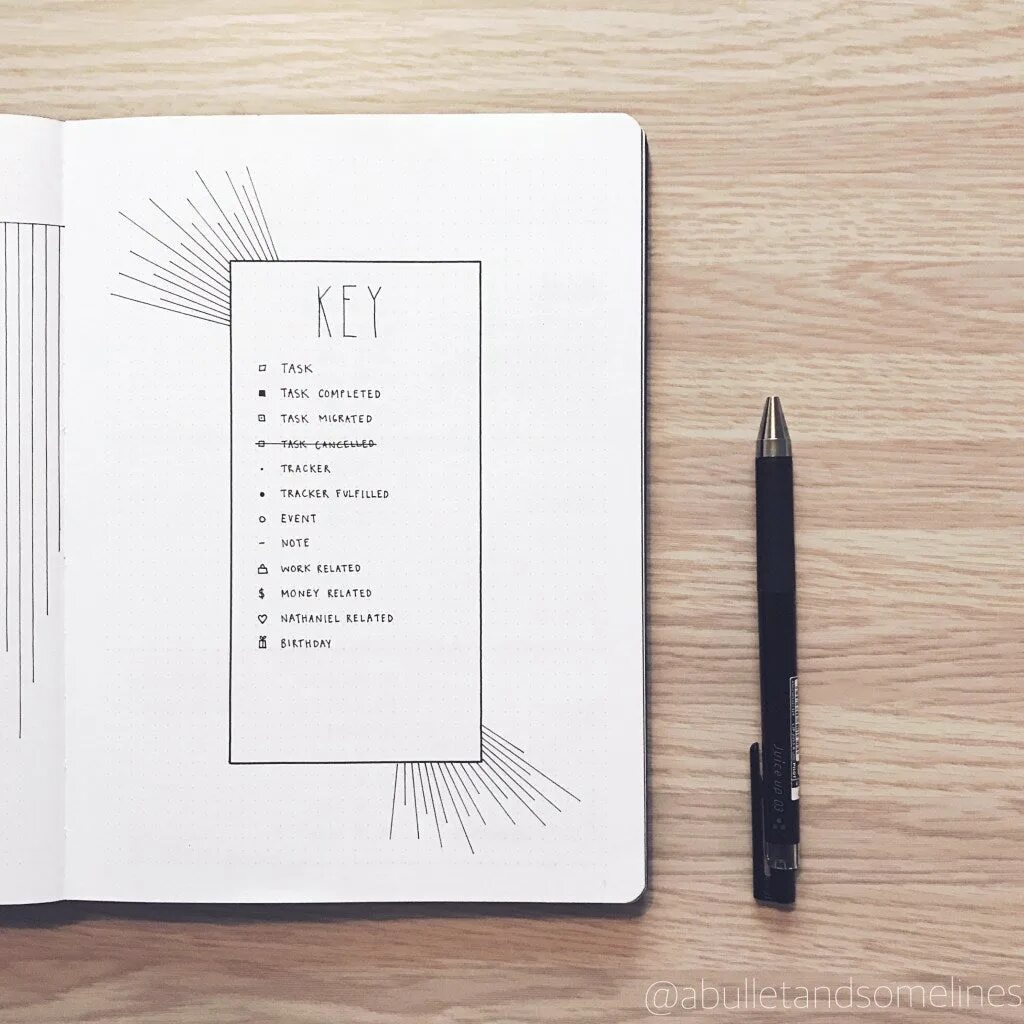 KEY
TASK
TASK COMPLETED
TASK MIGRATED
TASK CANCELLED
TRACKER
TRACKER FULFILLED
EVENT
NOTE
WORK RELATED
$ MONEY RELATED
NATHANIEL RELATED
BIRTHDAY
Juice up 03
@abulletandsomelines